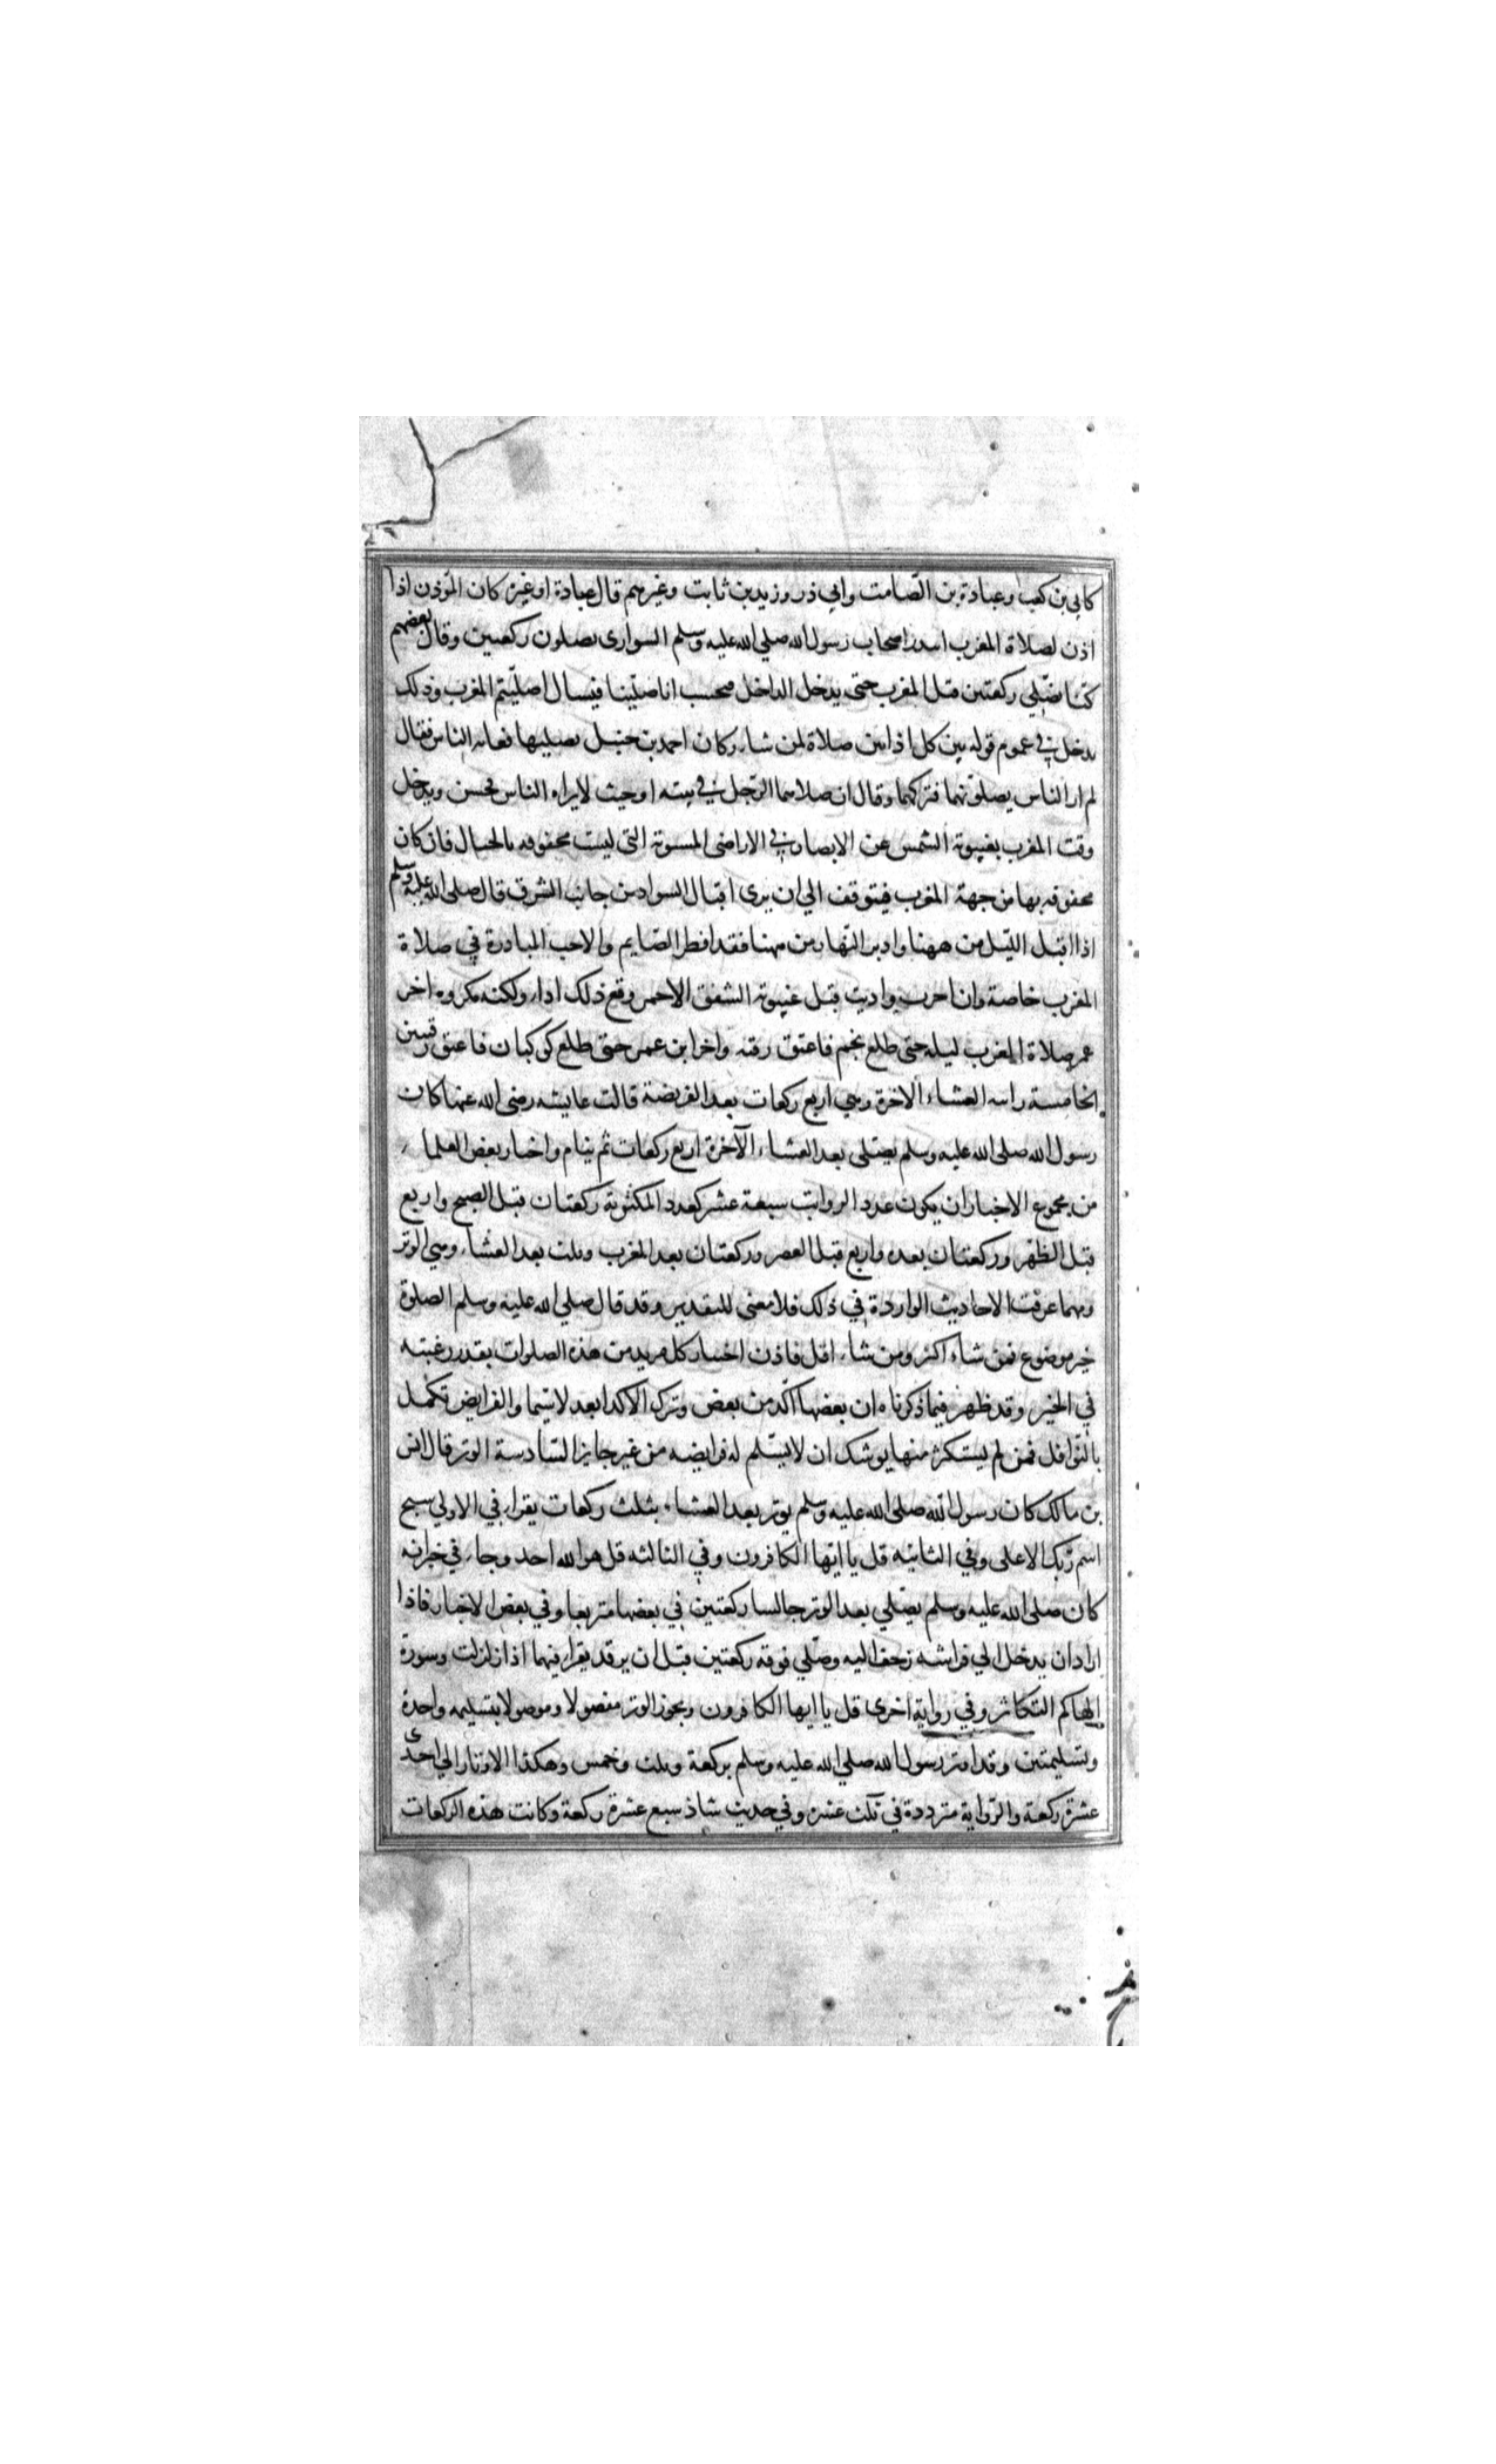 كابي بن كعب وعبادة بن الصامت وابي ذر وزيد بن ثابت وغيرهم قال عبادة او غيره كان المؤذن اذا
اذن لصلاة المغرب ابتدر اصحاب رسول الله صلي الله عليه وسلم السوارى يصلون ركعتين وقال بعضهم
كنا نصلي ركعتين قبل المغرب حتى يدخل الداخل فيحسب انا صلينا فيسال اصليتم المغرب وذلك
يدخل في عموم قوله بين كل اذانين صلاة لمن شاء وكان احمد بن حنبل يصليها فعابه الناس فقال
لم ار الناس يصلونهما فتركهما وقال ان صلاهما الرجل في بيته او حيث لا يراه الناس فحسن ويدخل
وقت المغرب بغيبوبة الشمس عن الابصار في الاراضي المستوية التي ليست محفوفه بالجبال فان كان
محفوفه بها من جهة المغرب فيتوقف الي ان يرى اقبال السواد من جانب الشرق قال صلى الله عليه وسلم
اذا اقبل الليل من ههنا وادبر النهار من ههنا فقد افطر الصايم والاحب المبادرة في صلاة
المغرب خاصة وان اخرت واديت قبل غيبوبة الشفق الاحمر وقع ذلك اداء ولكنه مكروه اخر
عمر صلاة المغرب ليله حتى طلع نجم فاعتق رقبه واخر ابن عمر حتى طلع كوكبان فاعتق رقبتين
الخامسة راتبه العشاء الاخرة وهي اربع ركعات بعد الفريضة قالت عايشه رضى الله عنها كان
رسول الله صلى الله عليه وسلم يصلى بعد العشاء الآخرة اربع ركعات ثم ينام واختار بعض العلماء
من مجموع الاخبار ان يكون عدد الرواتب سبعة عشر كعدد المكتوبة ركعتان قبل الصبح واربع
قبل الظهر وركعتان بعده واربع قبل العصر وركعتان بعد المغرب وثلث بعد العشاء وهي الوتر
ومهما عرفت الاحاديث الواردة في ذلك فلا معنى للتقدير وقد قال صلي الله عليه وسلم الصلوة
خير موضوع فمن شاء اكثر ومن شاء اقل فاذن اختيار كل مريد من هذه الصلوات بقدر رغبته
في الخير وقد ظهر فيما ذكرناه ان بعضها آكد من بعض وترك الاكد ابعد لا سيما والفرايض تكمل
بالنوافل فمن لم يستكثر منها يوشك ان لا يسلم له فرايضه من غير جابر السادسة الوتر قال انس
بن مالك كان رسول الله صلى الله عليه وسلم يوتر بعد العشاء بثلث ركعات يقرا في الاولي سبح
اسم ربك الاعلى وفي الثانيه قل يا ايها الكافرون وفي الثالثه قل هو الله احد وجاء في خبر انه
كان صلى الله عليه وسلم يصلي بعد الوتر جالسا ركعتين في بعضها متربعا وفي بعض الاخبار فاذا
اراد ان يدخل الي فراشه زحف اليه وصلي فوقه ركعتين قبل ان يرقد يقرا فيهما اذا زلزلت وسورة
الهاكم التكاثر وفي رواية اخرى قل يا ايها الكافرون ويجوز الوتر مفصولا وموصولا بتسليمه واحدة
وبتسليمتين وقد اوتر رسول الله صلي الله عليه وسلم بركعة وثلث وخمس وهكذا الاوتار الي احدى
عشرة ركعة والرواية مترددة في ثلث عشره وفي حديث شاذ سبع عشرة ركعة وكانت هذه الركعات